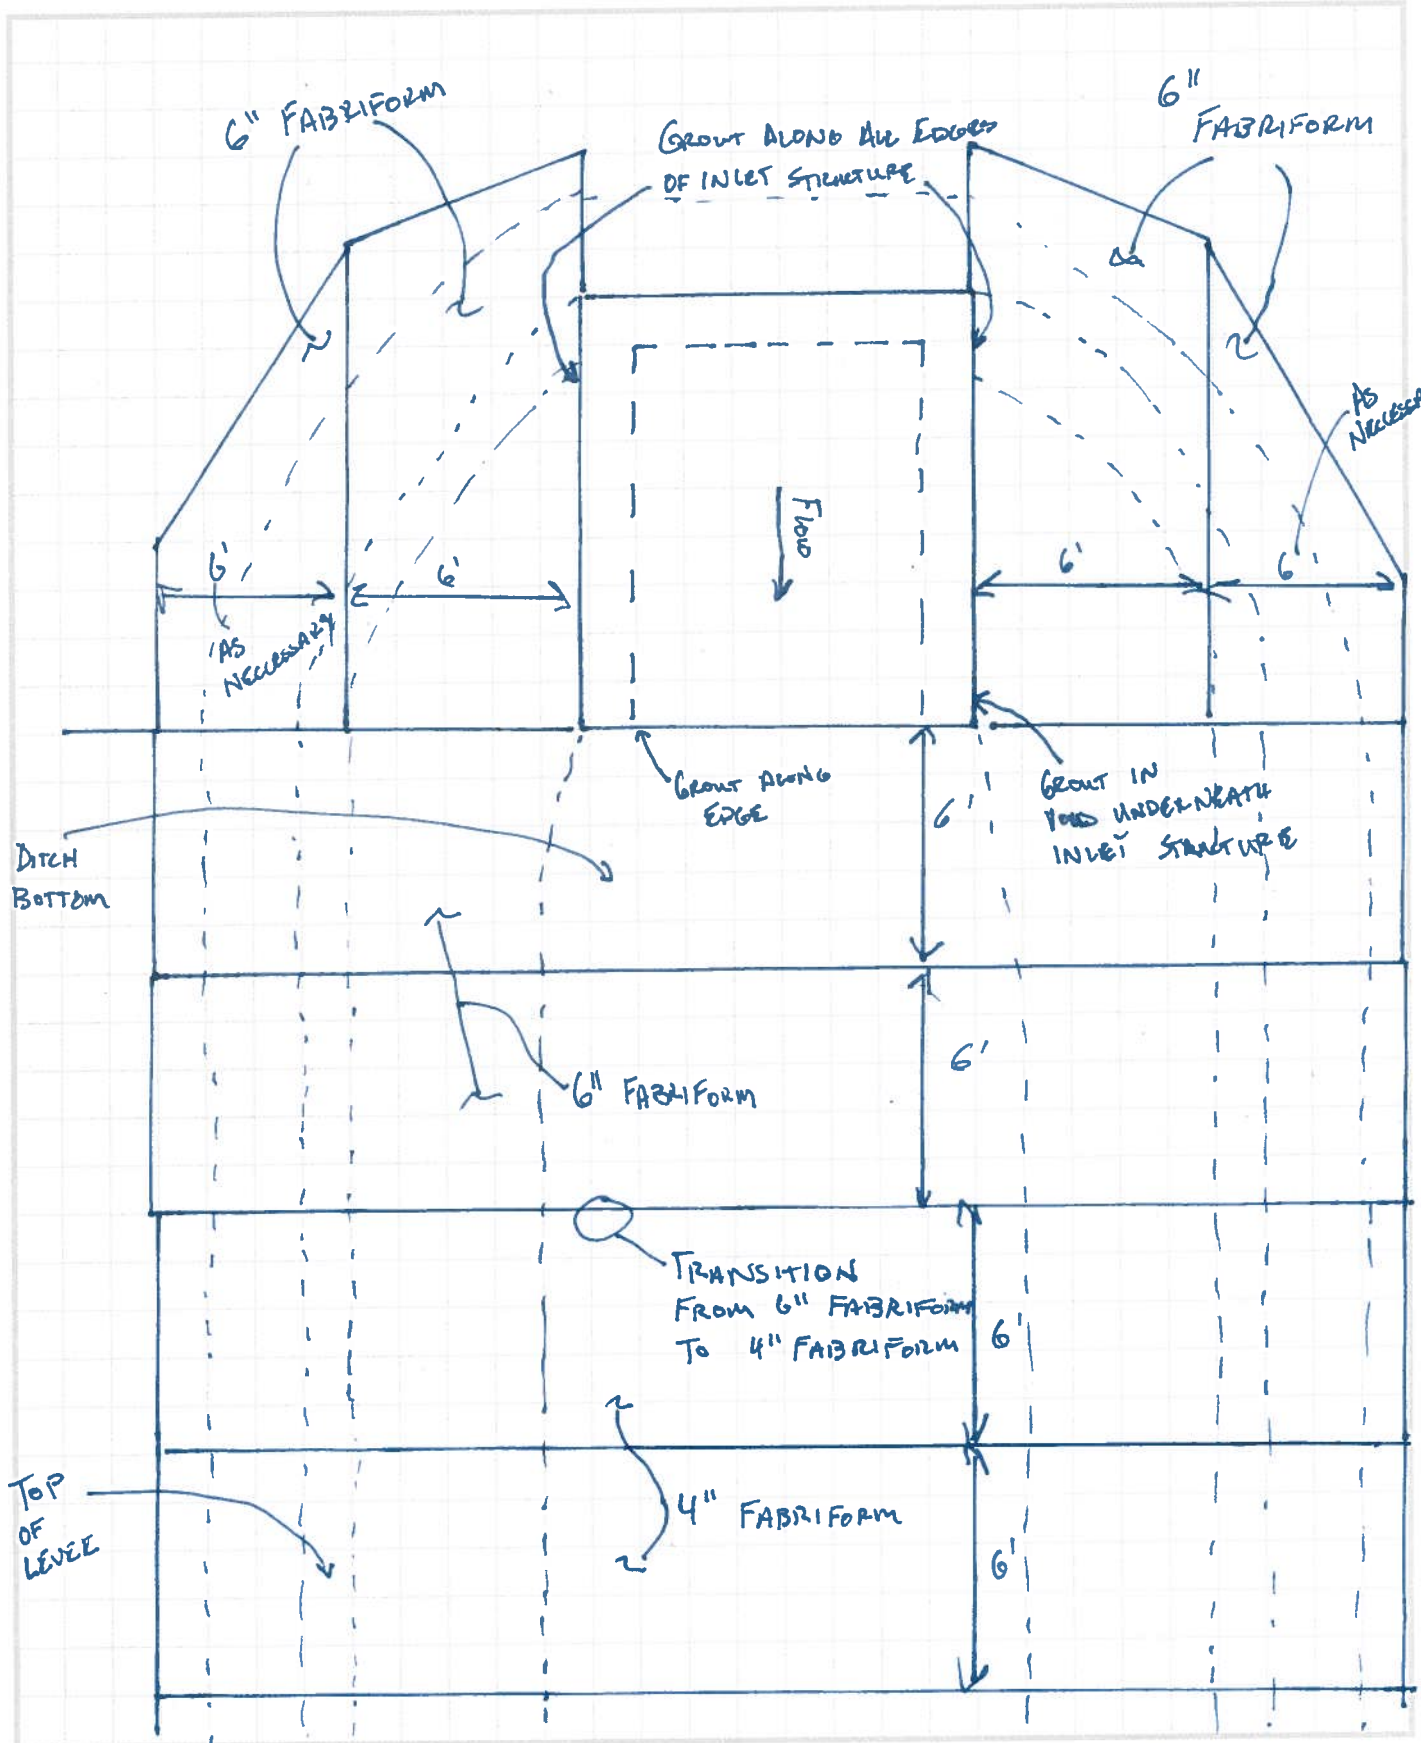 6" FABRIFORM
GROUT ALONG ALL EDGES
OF INLET STRUCTURE
6"
FABRIFORM
AS
6'
6'
6'
6'
AS
NECCESSARY
FLOW
GROUT ALONG
EDGE
6'
GROUT IN
VOID UNDERNEATH
INLET STRUCTURE
DITCH
BOTTOM
6'
6" FABRIFORM
TRANSITION
FROM 6" FABRIFORM
TO 4" FABRIFORM
6'
TOP
OF
LEVEE
4" FABRIFORM
6'